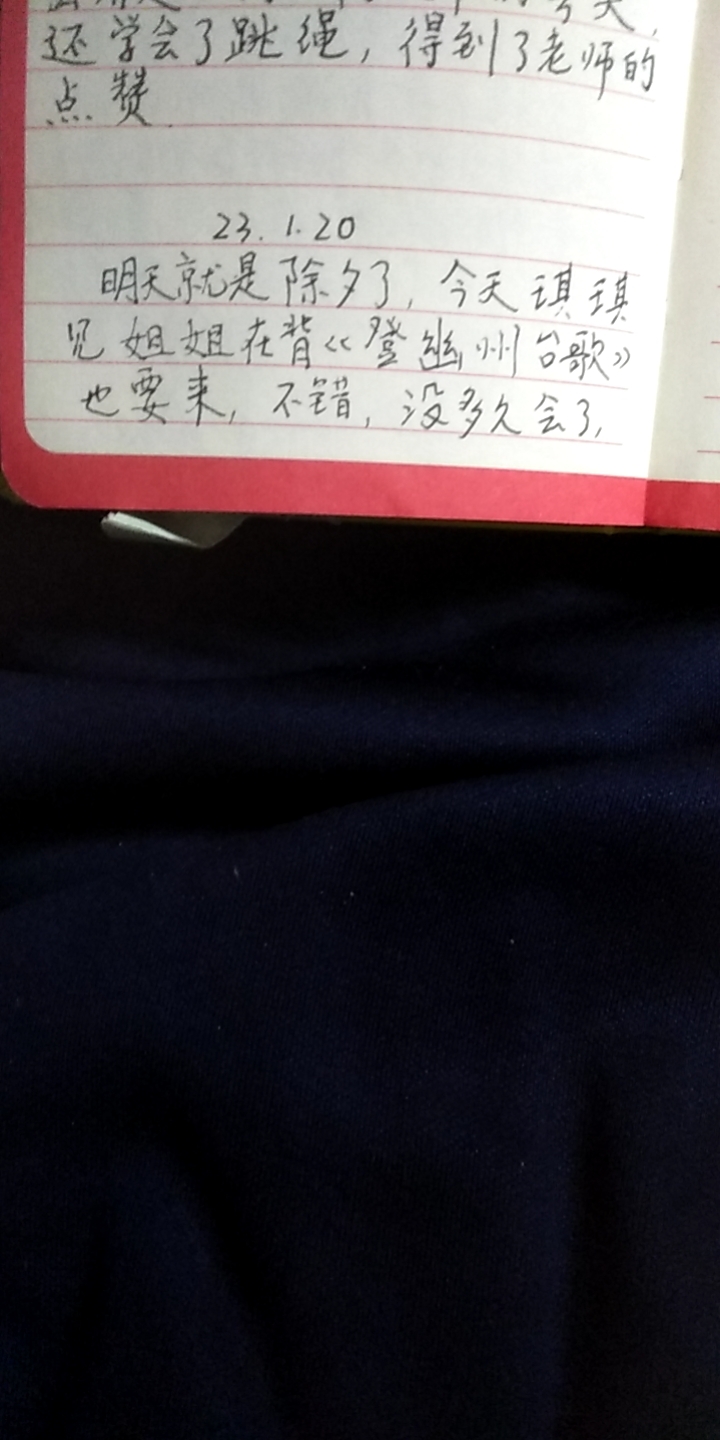 还学会了跳绳，得到了老师的
点赞.
23.1.20
明天就是除夕了，今天琪琪
见姐姐在背《登幽州台歌》
也要来，不错，没多久会了，